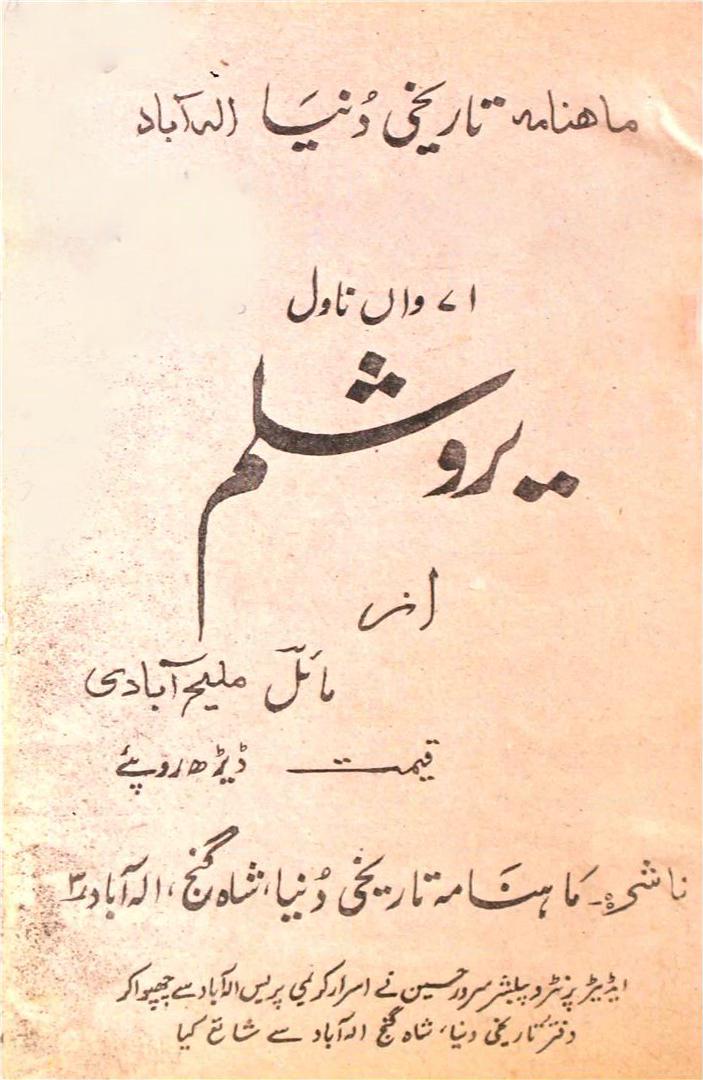 ماهنامہ تاریخی دُنیَا الہ آباد
۷۱ واں ناول
یروشلم
از
مائلؔ ملیح آبادی
قیمت ــــــ ڈیڑھ روپئے
ناشرہ۔ مَاہنَامہ تاریخی دُنیا، شاہ گنج، الہ آباد ۳
ایڈیٹر پرنٹر و پبلشر سرور حسین نے اسرار کریمی پریس الہ آباد سے چھپوا کر
دفتر تاریخی دنیا، شاہ گنج الہ آباد سے شائع کیا